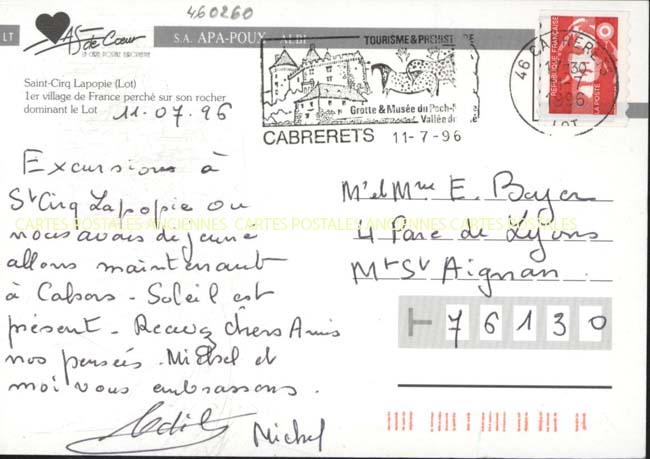 460260
LT
AS de Cœur
LA CARTE POSTALE EUROPÉENNE
S.A. APA-POUX ALBI
Saint-Cirq Lapopie (Lot)
1er village de France perché sur son rocher
dominant le Lot
11.07.96
TOURISME & PREHIST
Grotte & Musée du Pech-M
Vallée du
CABRERETS 11-7-96
46 CABRERETS
1996
LOT
REPUBLIQUE FRANÇAISE
LA POSTE
Excursions à
St Cirq Lapopie ou
nous avons dejeuné
allons maintenant
à Cahors - Soleil est
présent - Recevez chers Amis
nos pensées. Michel et
moi vous embrassons.
Michel
Mr et Mme E. Boyer
4 Parc de Lyons
Mt St Aignan
76130
CARTES POSTALES ANCIENNES CARTES POSTALES ANCIENNES CARTES POSTALES